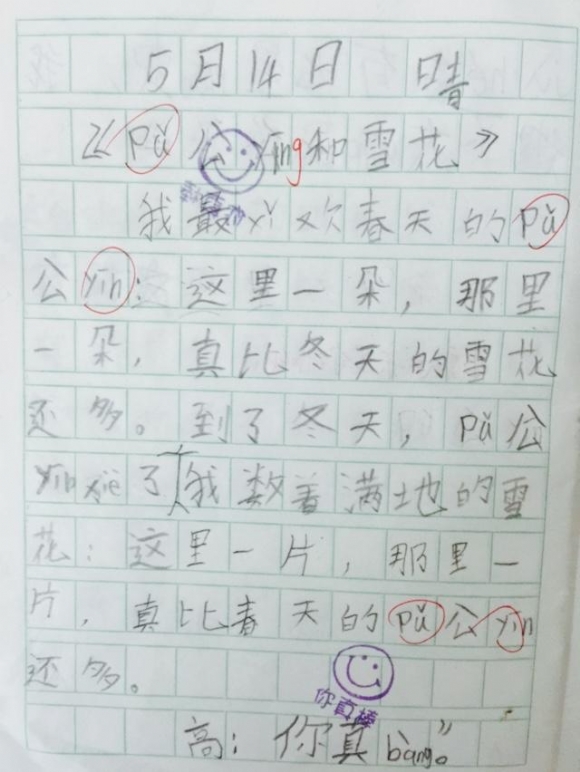 5月14日 晴
《pǔ公yīng和雪花》
我最xǐ欢春天的pǔ
公yīn：这里一朵，那里
一朵，真比冬天的雪花
还多。到了冬天，pǔ公
yīnxiè了我数着满地的雪
花：这里一片，那里一
片，真比春天的pǔ公yīn
还多。
你真棒
高：你真bàng。”